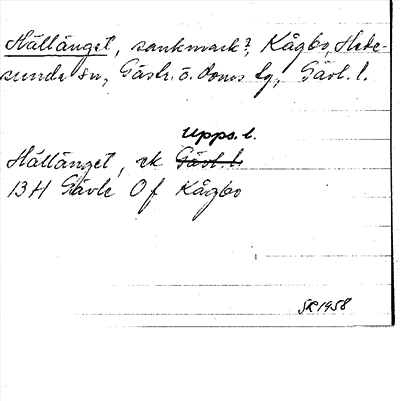 Hällänget, sankmark?, Kågbo, Hede-
sunda sn, Gästr. ö. doms lg, Gävl. l.
Upps. l.
Hällänget, ek Gävl. l.
13H Gävle Of Kågbo
SR 1958